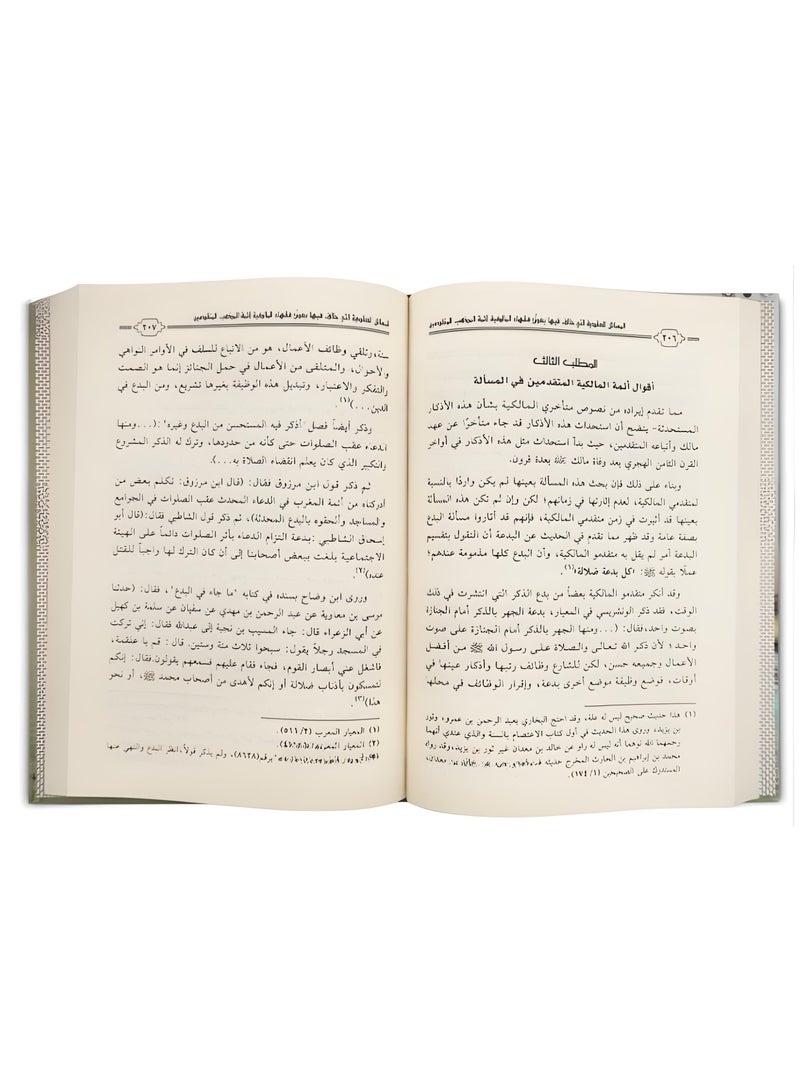 المسائل العقدية التي خالف فيها بعض فقهاء المالكية أئمة المذهب المتقدمين
٢٠٦
المطلب الثالث
أقوال أئمة المالكية المتقدمين في المسألة
مما تقدم إيراده من نصوص متأخري المالكية بشأن هذه الأذكار
المستحدثة- يتضح أن استحداث هذه الأذكار قد جاء متأخرًا عن عهد
مالك وأتباعه المتقدمين، حيث بدأ استحداث مثل هذه الأذكار في أواخر
القرن الثامن الهجري بعد وفاة مالك رحمه الله بعدة قرون.
وبناء على ذلك فإن بحث هذه المسألة بعينها لم يكن واردًا بالنسبة
لمتقدمي المالكية، لعدم إثارتها في زمانهم؛ لكن وإن لم تكن هذه المسألة
بعينها قد أثيرت في زمن متقدمي المالكية، فإنهم قد أثاروا مسألة البدع
بصفة عامة وقد ظهر مما تقدم في الحديث عن البدعة أن القول بتقسيم
البدعة أمر لم يقل به متقدمو المالكية، وأن البدع كلها مذمومة عندهم؛
عملًا بقوله ﷺ: «كل بدعة ضلالة»(١).
وقد أنكر متقدمو المالكية بعضاً من بدع الذكر التي انتشرت في ذلك
الوقت، فقد ذكر الونشريسي في المعيار، بدعة الجهر بالذكر أمام الجنازة
بصوت واحد،فقال: (...ومنها الجهر بالذكر أمام الجنازة على صوت
واحد؛ لأن ذكر الله تعالى والصلاة على رسول الله ﷺ من أفضل
الأعمال وجميعه حسن، لكن للشارع وظائف رتبها وأذكار عينها في
أوقات، فوضع وظيفة موضع أخرى بدعة، وإقرار الوظائف في محلها
(١) هذا حديث صحيح ليس له علة، وقد احتج البخاري بعبد الرحمن بن عمرو، وثور
بن يزيد، وروى هذا الحديث في أول كتاب الاعتصام بالسنة والذي عندي أنهما
رحمهما الله توهما أنه ليس له راو عن خالد بن معدان غير ثور بن يزيد،وقد رواه
محمد بن إبراهيم بن الحارث المخرج حديثه معدان،
المستدرك على الصحيحين (١/ ١٧٤).
المسائل العقدية التي خالف فيها بعض فقهاء المالكية أئمة المذهب المتقدمين
٢٠٧
سنة، وتلقي وظائف الأعمال، هو من الاتباع للسلف في الأوامر النواهي
والأحوال، والمتلقى من الأعمال في حمل الجنائز إنما هو الصمت
والتفكر والاعتبار، وتبديل هذه الوظيفة بغيرها تشريع، ومن البدع في
الدين...)(١).
وذكر أيضاً فصل "أذكر فيه المستحسن من البدع وغيره": (...ومنها
الدعاء عقب الصلوات حتى كأنه من حدودها، وترك له الذكر المشروع
والتكبير الذي كان يعلم انقضاء الصلاة به...).
ثم ذكر قول ابن مرزوق فقال: (قال ابن مرزوق: تكلم بعض من
أدركناه من أئمة المغرب في الدعاء المحدث عقب الصلوات في الجوامع
والمساجد وألحقوه بالبدع المحدثة)، ثم ذكر قول الشاطبي فقال:(قال أبو
إسحق الشاطبي :بدعة التزام الدعاء بأثر الصلوات دائماً على الهيئة
الاجتماعية بلغت ببعض أصحابنا إلى أن كان الترك لها واجباً للقتل
عنده)(٢).
وروى ابن وضاح بسنده في كتابه "ما جاء في البدع"، فقال: (حدثنا
موسى بن معاوية عن عبد الرحمن بن مهدي عن سفيان عن سلمة بن كهيل
عن أبي الزعراء قال: جاء المسيب بن نجبة إلى عبدالله فقال: إني تركت
في المسجد رجلاً يقول: سبحوا ثلاث مئة وستين. قال: قم يا علقمة،
فاشغل عني أبصار القوم، فجاء فقام عليهم فسمعهم يقولون.فقال: إنكم
لتمسكون بأذناب ضلالة أو إنكم لأهدى من أصحاب محمد ﷺ، أو نحو
هذا)(٣).
(١) المعيار المعرب
(٢) المعيار المعرب
برقم(٨٦٣٨)، ولم يذكر قولاً،انظر البدع والنهي عنها